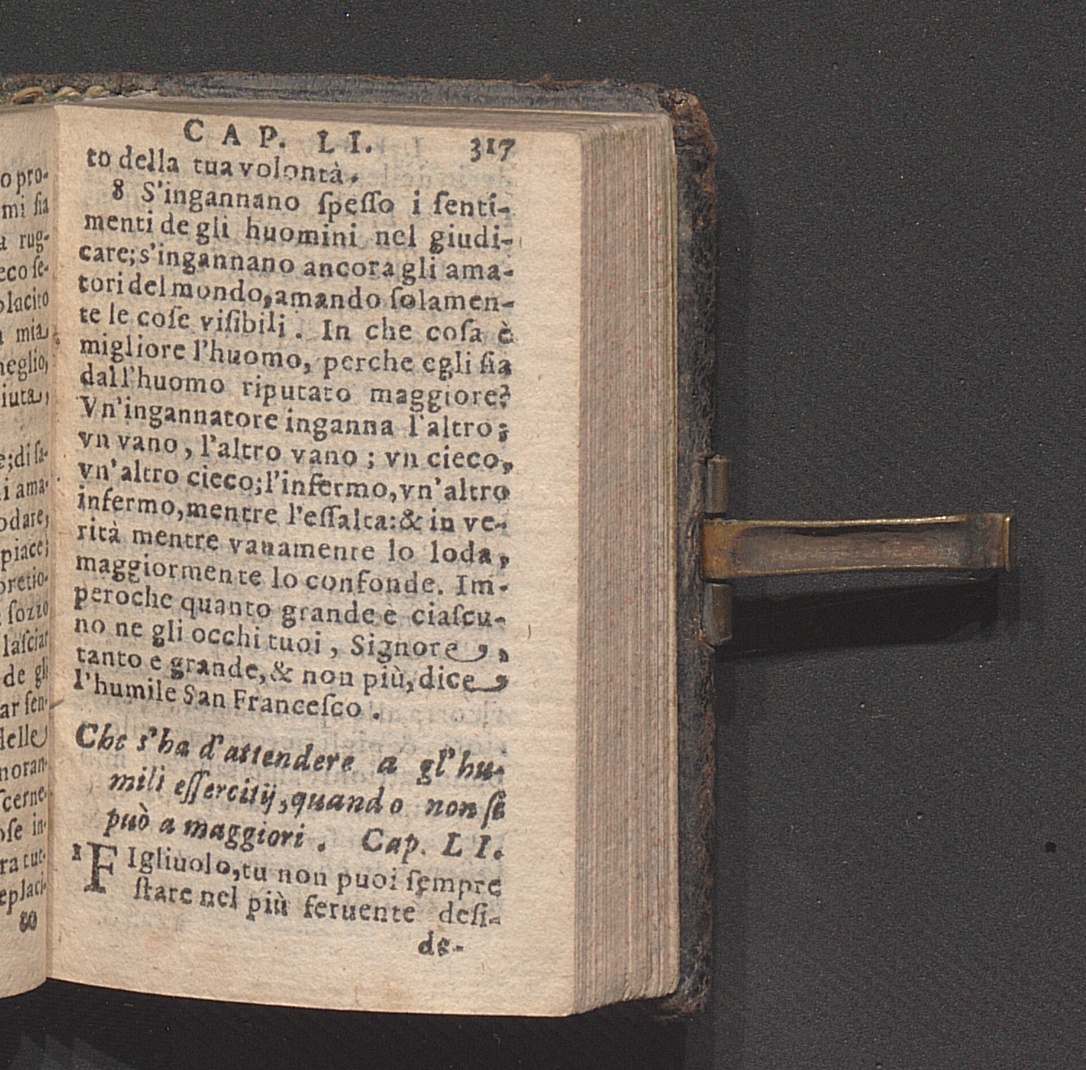 o pro-
mi ſia
a rug-
eco ſe-
placito
a mia
meglio,
iuta,
e; di ſa-
i ama-
odare,
piace;
pretio-
ſozzo
laſciar
de gli
ar ſen-
delle
noran-
ſcerne.
oſe in-
ra tut-
eplaci-
80
CAP. LI. 317
to della tua volontà.
8 S'ingannano ſpeſſo i ſenti-
menti de gli huomini nel giudi-
care; s'ingannano ancora gli ama-
tori del mondo, amando ſolamen-
te le coſe viſibili. In che coſa è
migliore l'huomo, perche egli ſia
dall'huomo riputato maggiore?
Vn'ingannatore inganna l'altro;
vn vano, l'altro vano; vn cieco,
vn'altro cieco; l'infermo, vn'altro
infermo, mentre l'eſſalta: & in ve-
rità mentre vanamente lo loda,
maggiormente lo confonde. Im-
peroche quanto grande è ciaſcu-
no ne gli occhi tuoi, Signore,
tanto e grande, & non più, dice
l'humile San Franceſco.
Che s'ha d'attendere a gl'hu-
mili eſſercitij, quando non ſi
può a maggiori. Cap. LI.
1 FIgliuolo, tu non puoi ſempre
ſtare nel più feruente deſi-
de-